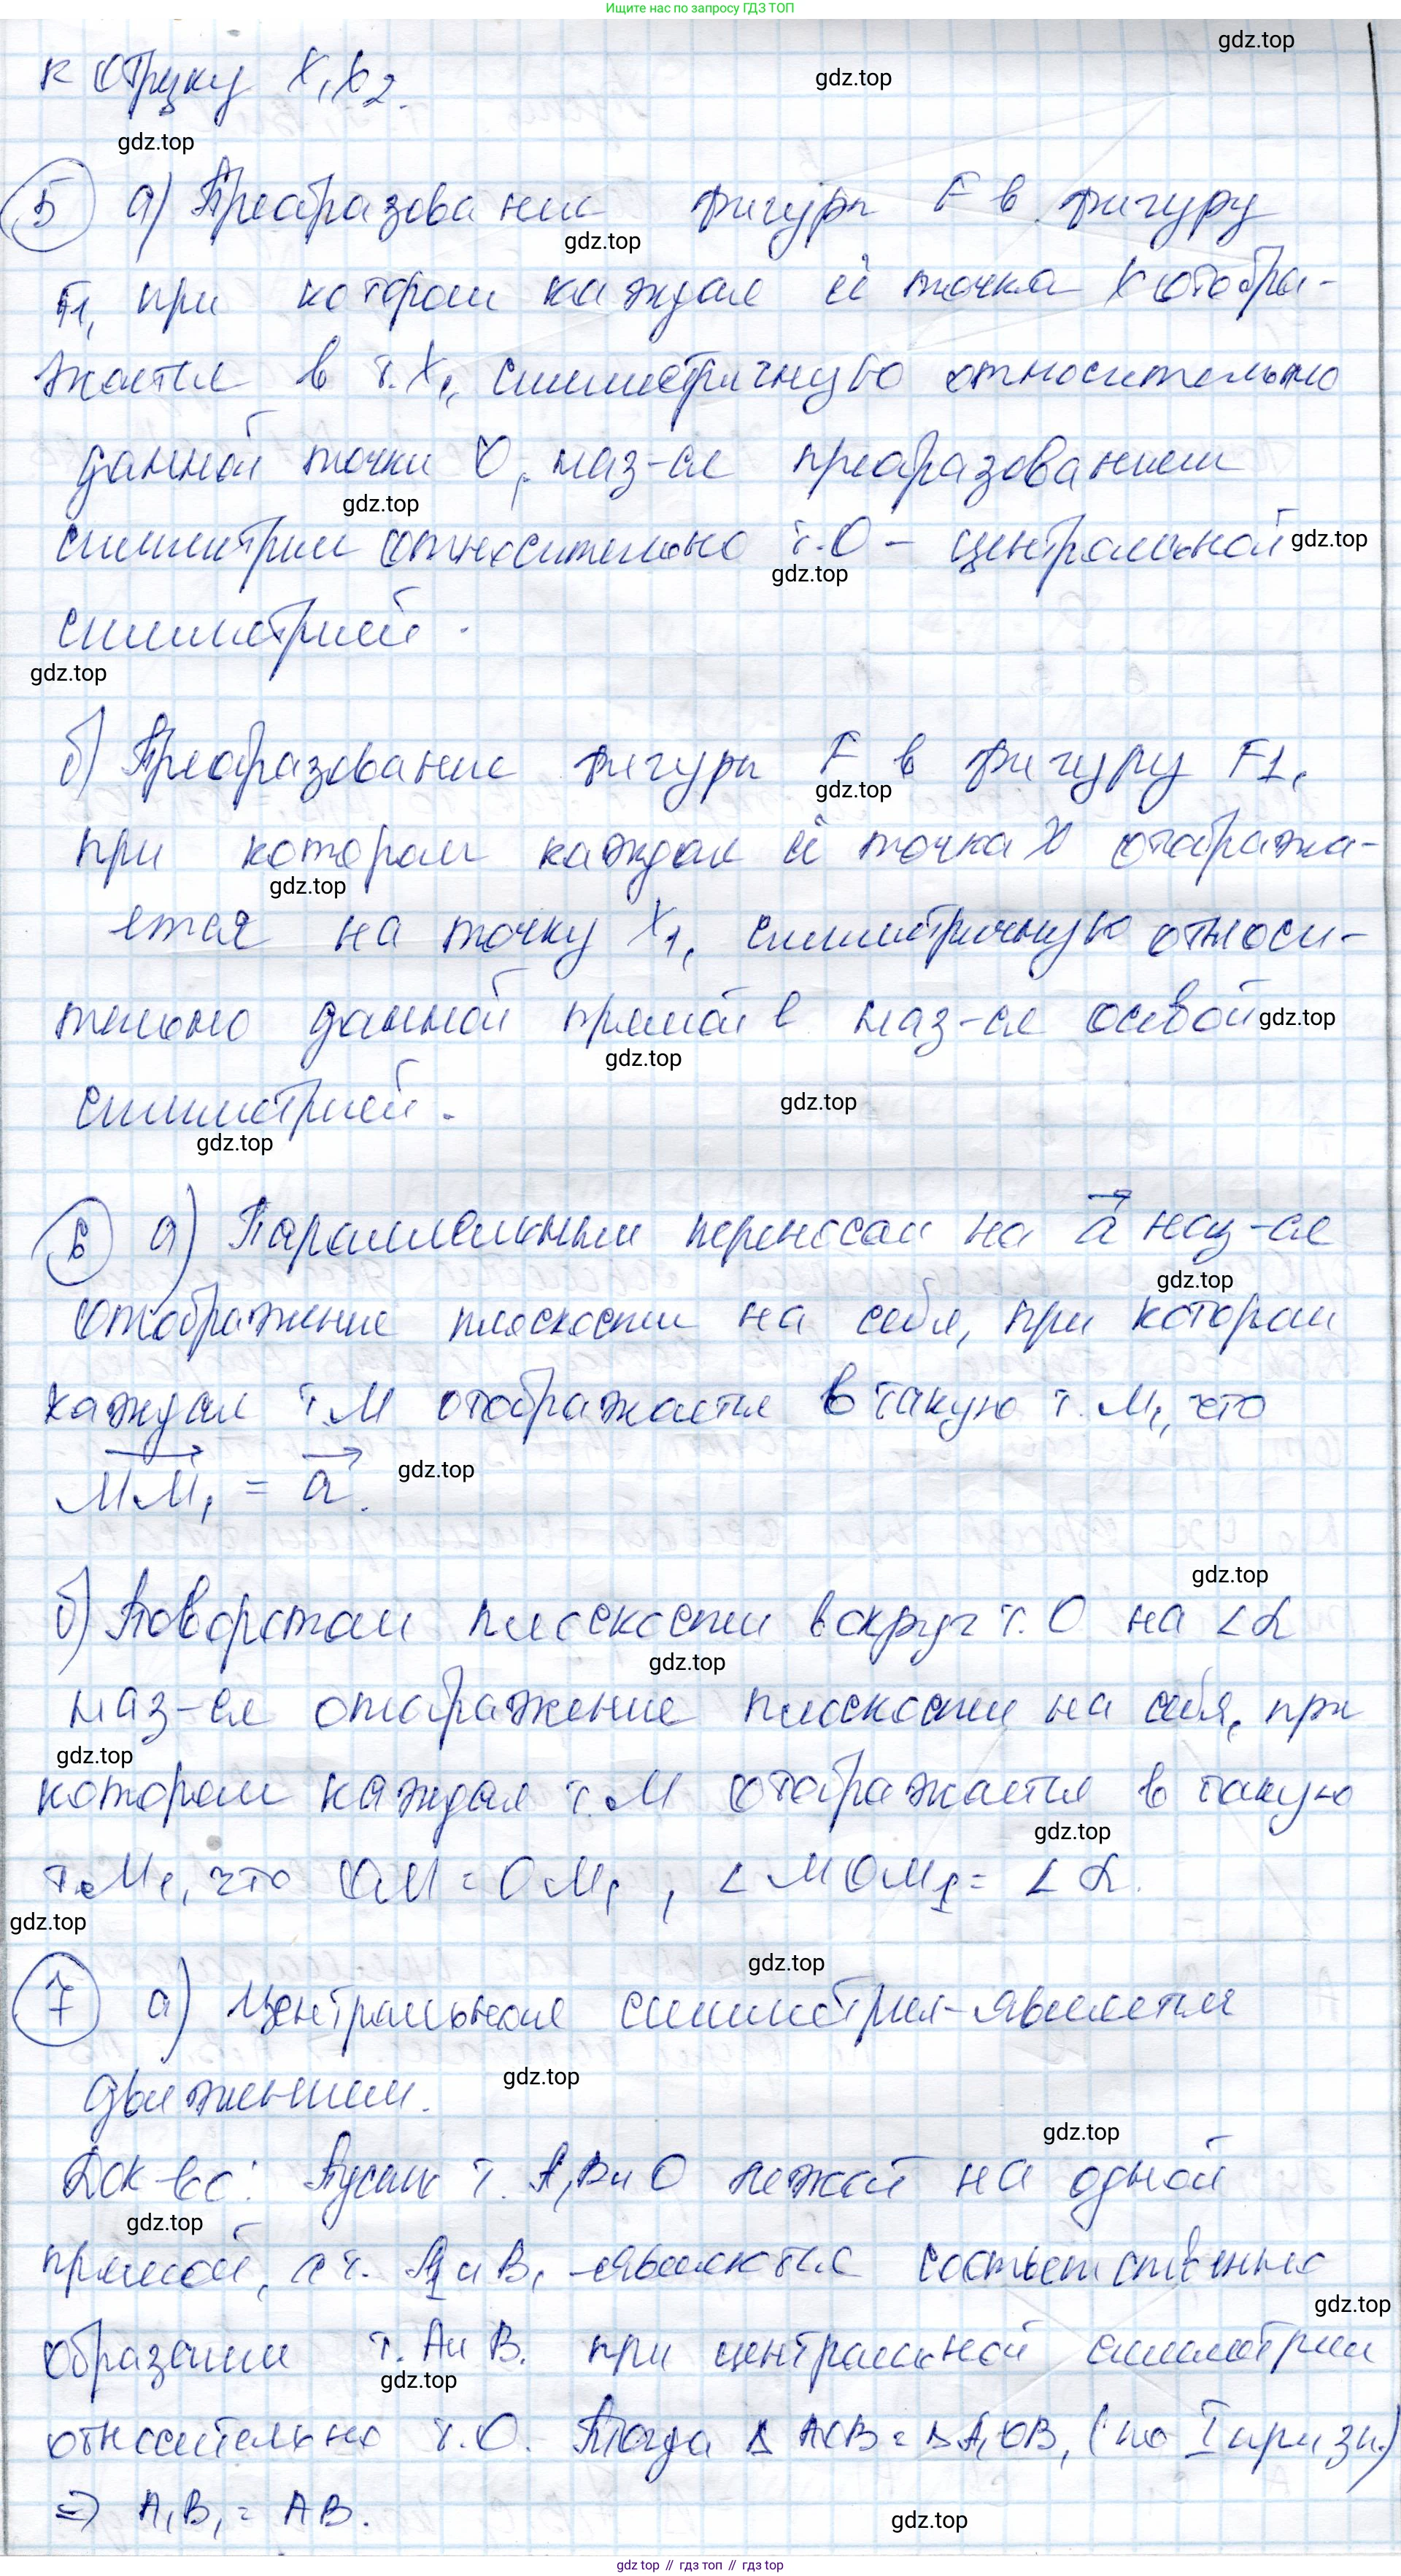 Ищите нас по запросу ГДЗ ТОП
gdz.top
к отрезку X₁X₂.
gdz.top
gdz.top
5 а) Преобразование фигуры F в фигуру
gdz.top
F1, при котором каждая её точка X отобра-
жается в т. X₁, симметричную относительно
данной точки O, наз-ся преобразованием
gdz.top
симметрии относительно т. O – центральной
gdz.top
gdz.top
симметрией.
gdz.top
б) Преобразование фигуры F в фигуру F1,
gdz.top
при котором каждая её точка X отобража-
gdz.top
ется на точку X₁, симметричную относи-
тельно данной прямой l наз-ся осевой
gdz.top
gdz.top
симметрией.
gdz.top
gdz.top
6 а) Параллельным переносом на a⃗ наз-ся
gdz.top
отображение плоскости на себя, при котором
каждая т. M отображается в такую т. M₁, что
MM₁ = a⃗.
gdz.top
gdz.top
б) Поворотом плоскости вокруг т. O на ∠α
gdz.top
наз-ся отображение плоскости на себя, при
gdz.top
котором каждая т. M отображается в такую
gdz.top
т. M₁, что OM = OM₁, ∠MOM₁ = ∠α.
gdz.top
gdz.top
7 а) Центральная симметрия – является
gdz.top
движением.
gdz.top
Док-во: Пусть т. A, B и O лежат на одной
gdz.top
прямой, а т. A₁ и B₁ – являются соответственно
gdz.top
образами т. A и B. при центральной симметрии
gdz.top
относительно т. O. Тогда Δ AOB = Δ A₁OB₁ (по I призн.)
⇒ A₁B₁ = AB.
gdz.top
gdz top // гдз топ // gdz top